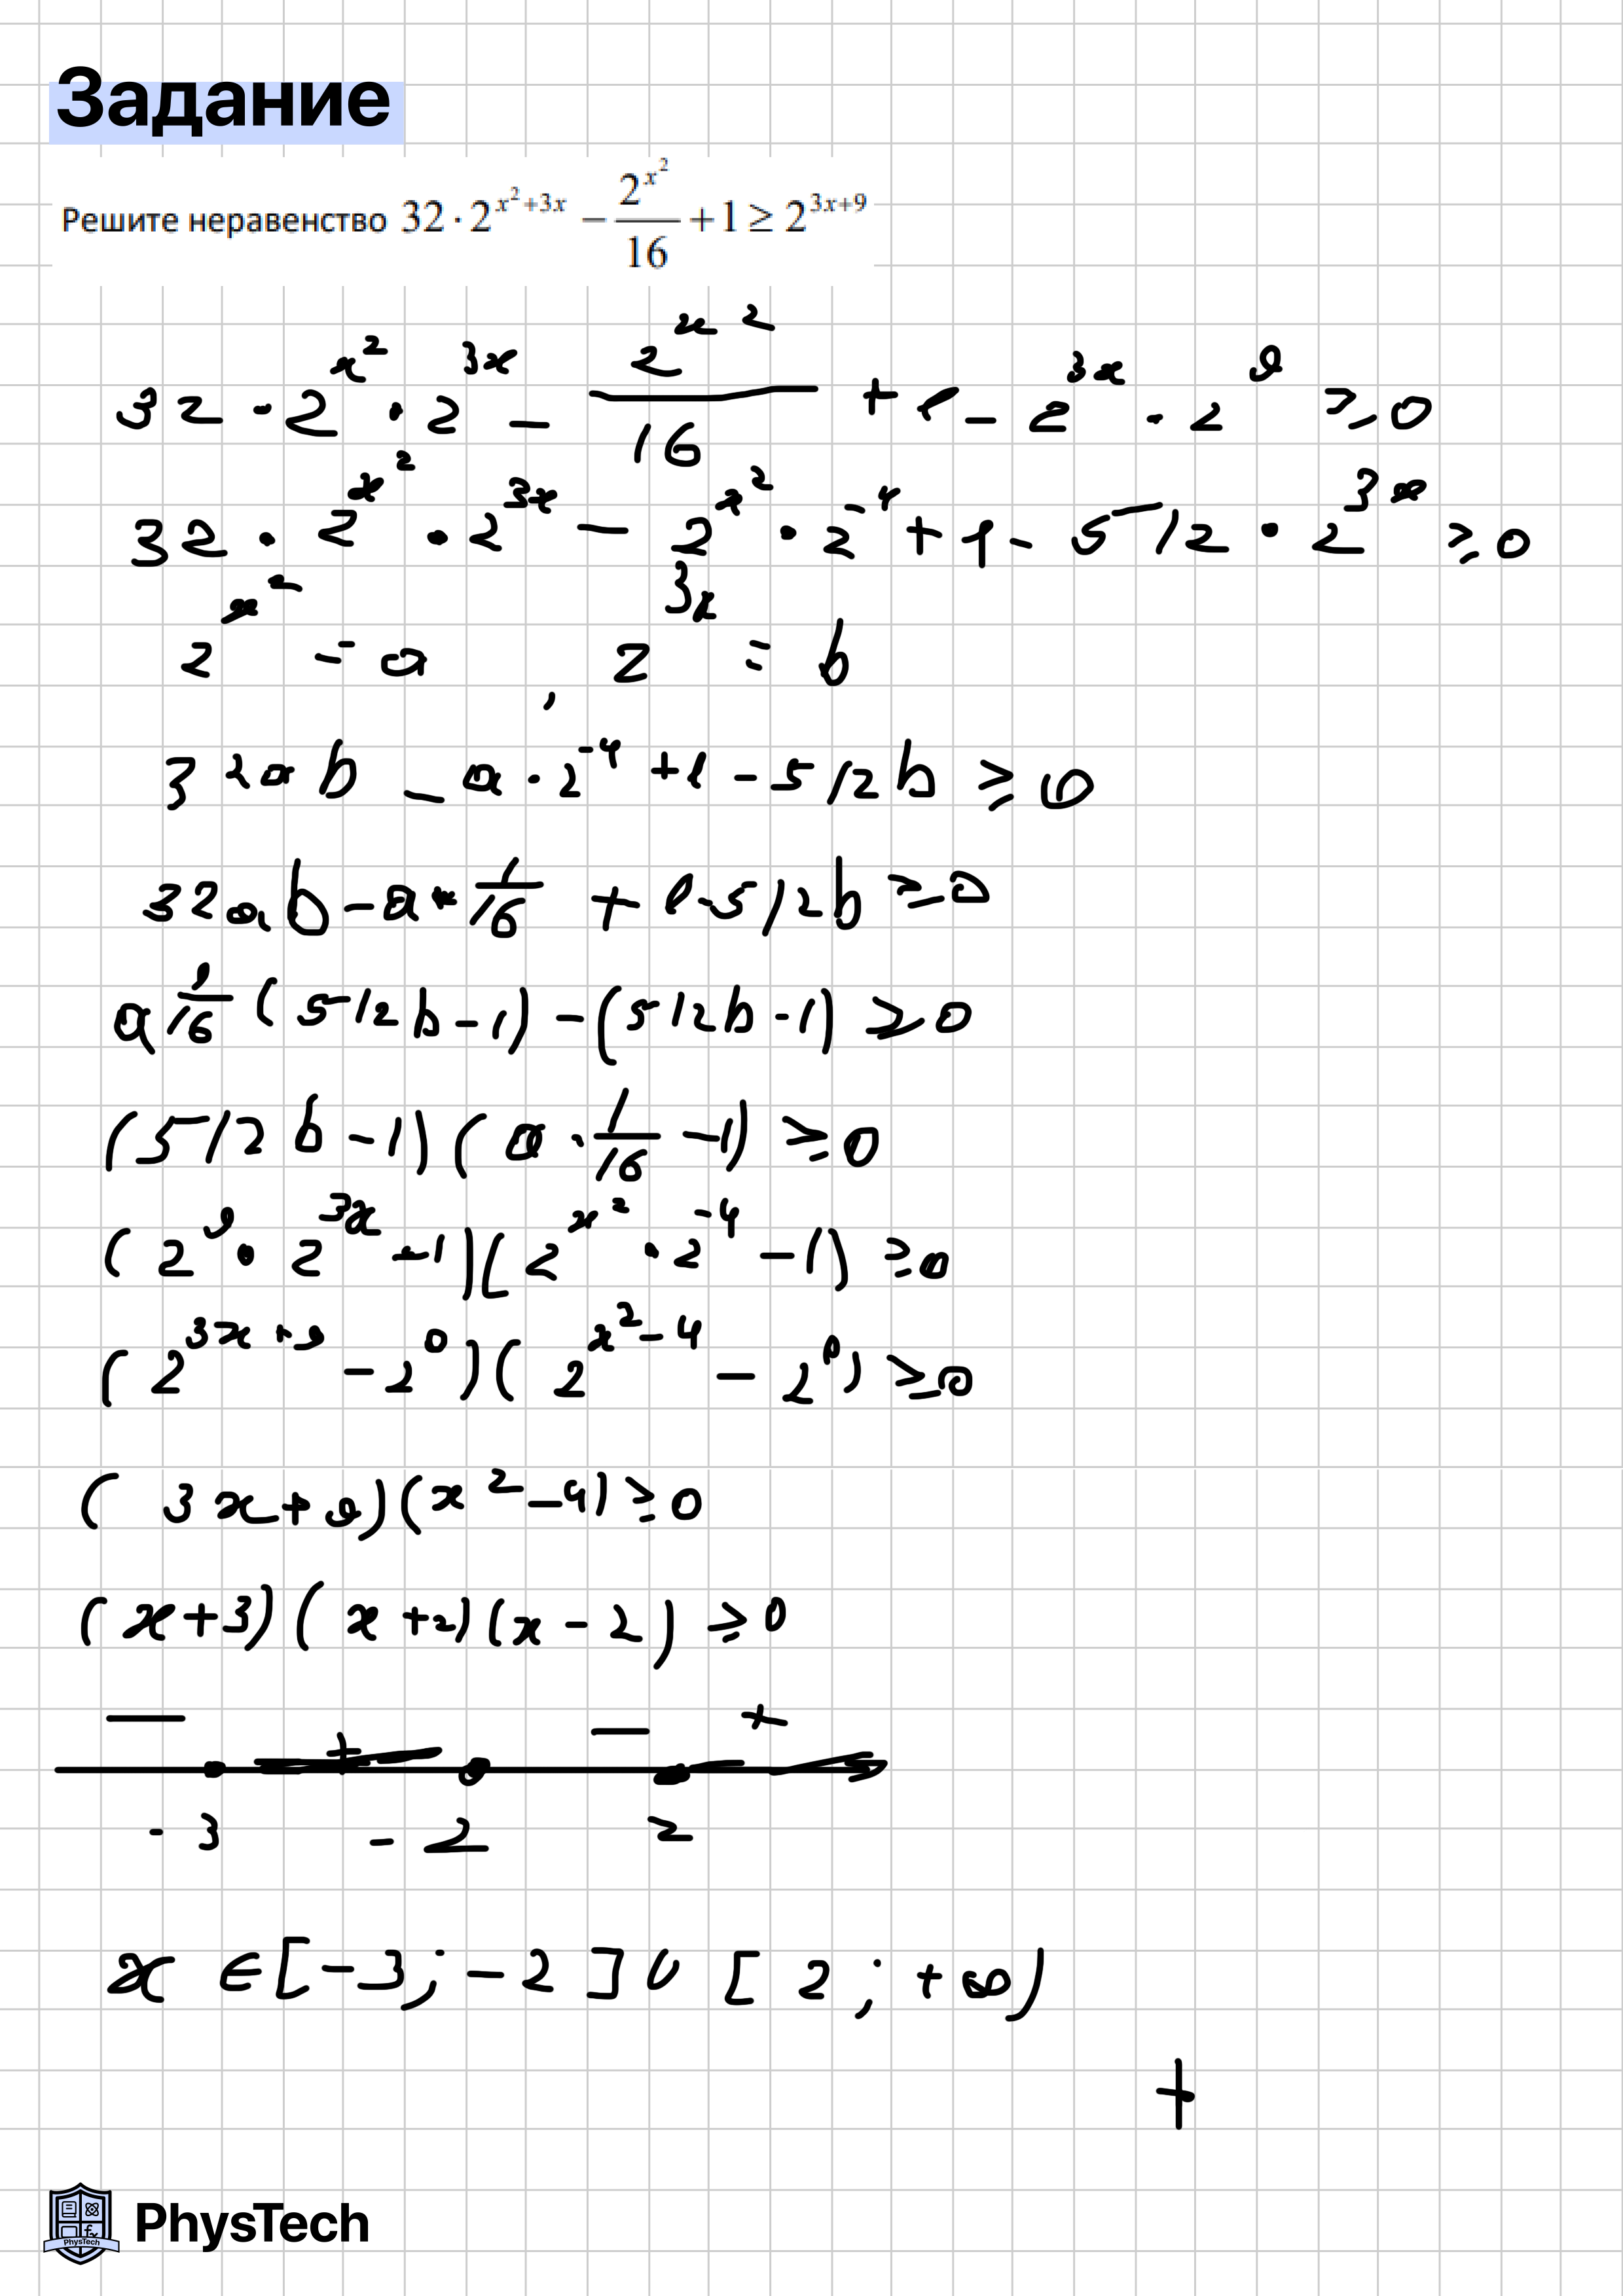 Задание
Решите неравенство 32 · 2^(x²+3x) − 2^(x²)/16 + 1 ≥ 2^(3x+9)
32 · 2^(x²) · 2^(3x) − 2^(x²)/16 + 1 − 2^(3x) · 2^9 ≥ 0
32 · 2^(x²) · 2^(3x) − 2^(x²) · 2^(-4) + 1 − 512 · 2^(3x) ≥ 0
2^(x²) = a , 2^(3x) = b
32ab − a · 2^(-4) + 1 − 512b ≥ 0
32ab − a · 1/16 + 1 − 512b ≥ 0
a 1/16 (512b − 1) − (512b − 1) ≥ 0
(512b − 1)(a · 1/16 − 1) ≥ 0
(2^9 · 2^(3x) − 1)(2^(x²) · 2^(-4) − 1) ≥ 0
(2^(3x+9) − 2^0)(2^(x²−4) − 2^0) ≥ 0
(3x + 9)(x² − 4) ≥ 0
(x + 3)(x + 2)(x − 2) ≥ 0
− + − +
-3 -2 2
x ∈ [−3; −2] ∪ [2; +∞)
+
PhysTech
PhysTech